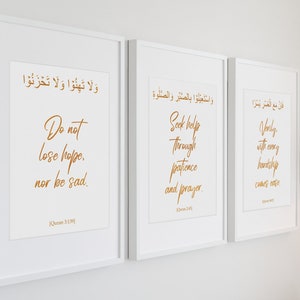 وَلَا تَهِنُوْا وَلَا تَحْزَنُوْا
Do not
lose hope,
nor be sad.
[Quran 3:139]
وَاسْتَعِيْنُوْا بِالصَّبْرِ وَالصَّلٰوةِ
Seek help
through
patience
and prayer.
مَعَ الْعُسْرِ يُسْرًا
Verily,
with every
hardship
comes ease.